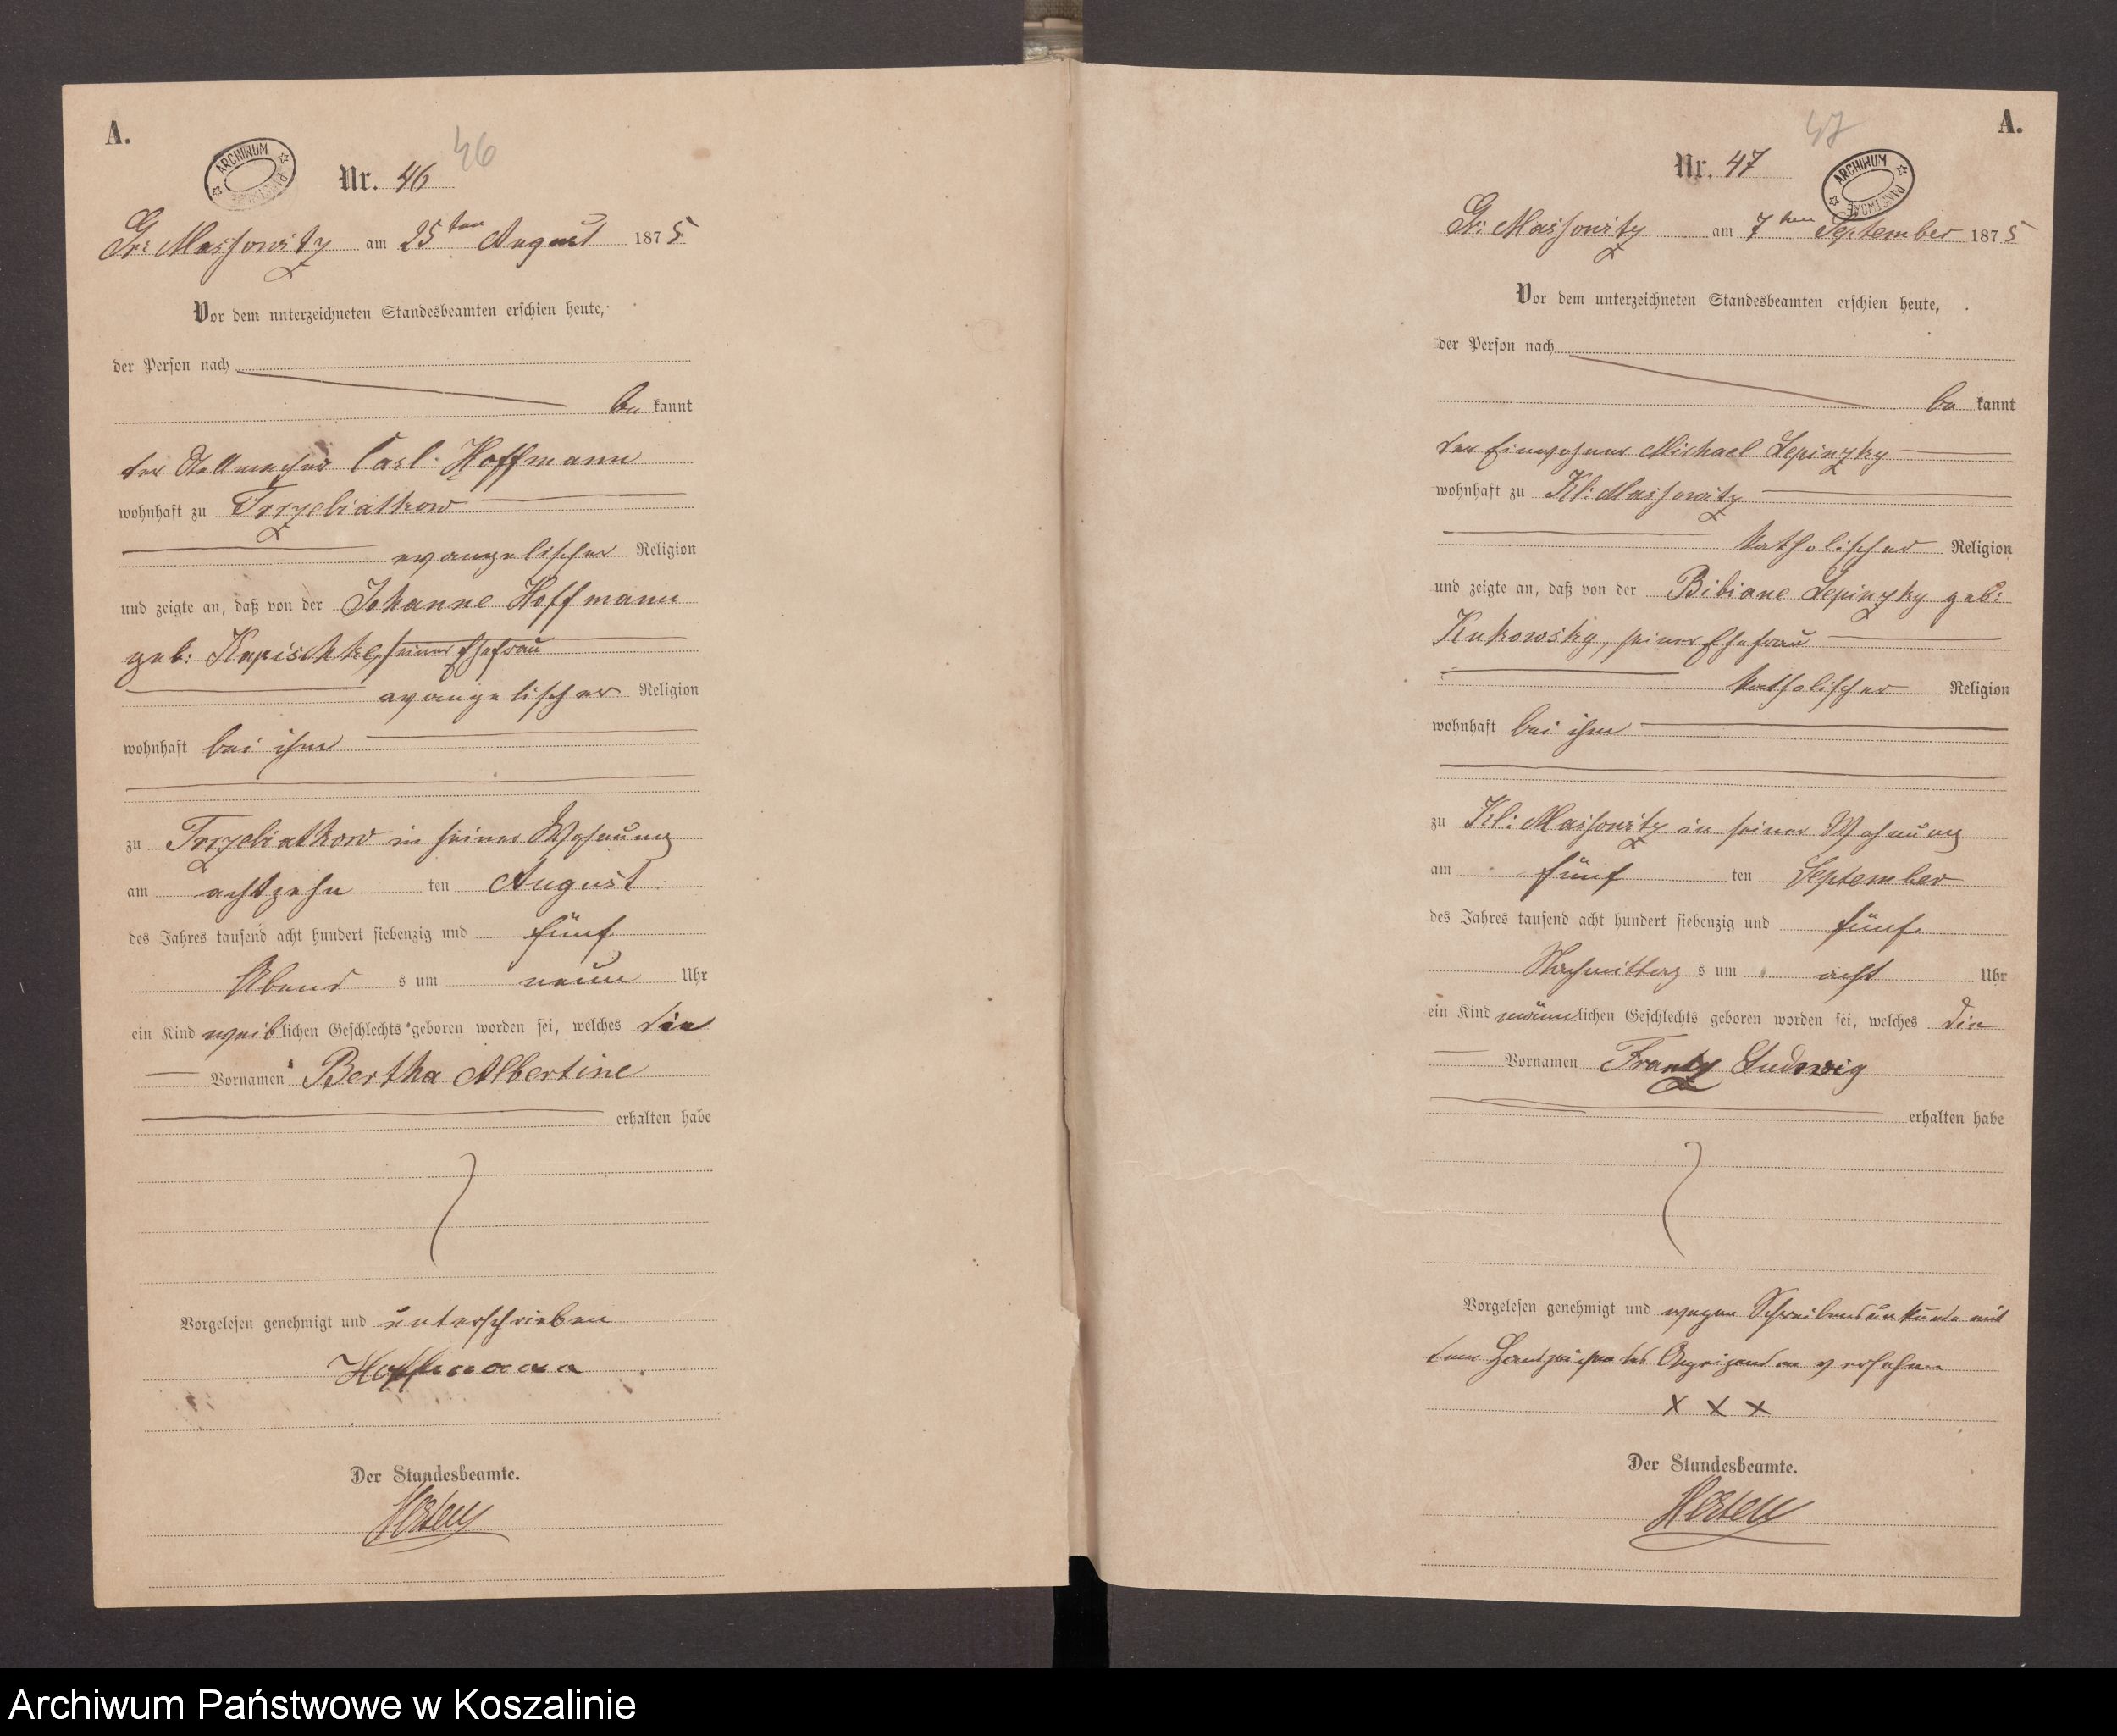 A.
ARCHIWUM PAŃSTWOWE
46
Nr. 46
Gr: Massowitz am 25ten August 1875
Vor dem unterzeichneten Standesbeamten erschien heute,
der Person nach
be kannt
der Stellmacher Carl Hoffmann
wohnhaft zu Trzebiatkow
evangelischer Religion
und zeigte an, daß von der Johanne Hoffmann
geb: Kapischke, seiner Ehefrau
evangelischer Religion
wohnhaft bei ihm
zu Trzebiatkow in seiner Wohnung
am achtzehn ten August
des Jahres tausend acht hundert siebenzig und fünf
Abend s um neun Uhr
ein Kind weiblichen Geschlechts geboren worden sei, welches die
Vornamen Bertha Albertine
erhalten habe
Vorgelesen genehmigt und unterschrieben
Hoffmann
Der Standesbeamte.
A.
47
Nr. 47
ARCHIWUM PAŃSTWOWE
Gr: Massowitz am 7ten September 1875
Vor dem unterzeichneten Standesbeamten erschien heute,
der Person nach
be kannt
der Einwohner Michael Lepinzky
wohnhaft zu Kl: Massowitz
katholischer Religion
und zeigte an, daß von der Bibiane Lepinzky geb:
Kukowsky, seiner Ehefrau
katholischer Religion
wohnhaft bei ihm
zu Kl: Massowitz in seiner Wohnung
am fünf ten September
des Jahres tausend acht hundert siebenzig und fünf
Nachmittag s um acht Uhr
ein Kind männlichen Geschlechts geboren worden sei, welches die
Vornamen Frantz Ludwig
erhalten habe
Vorgelesen genehmigt und wegen Schreibensunkunde mit
dem Handzeichen des Anzeigenden versehen
X X X
Der Standesbeamte.
Archiwum Państwowe w Koszalinie